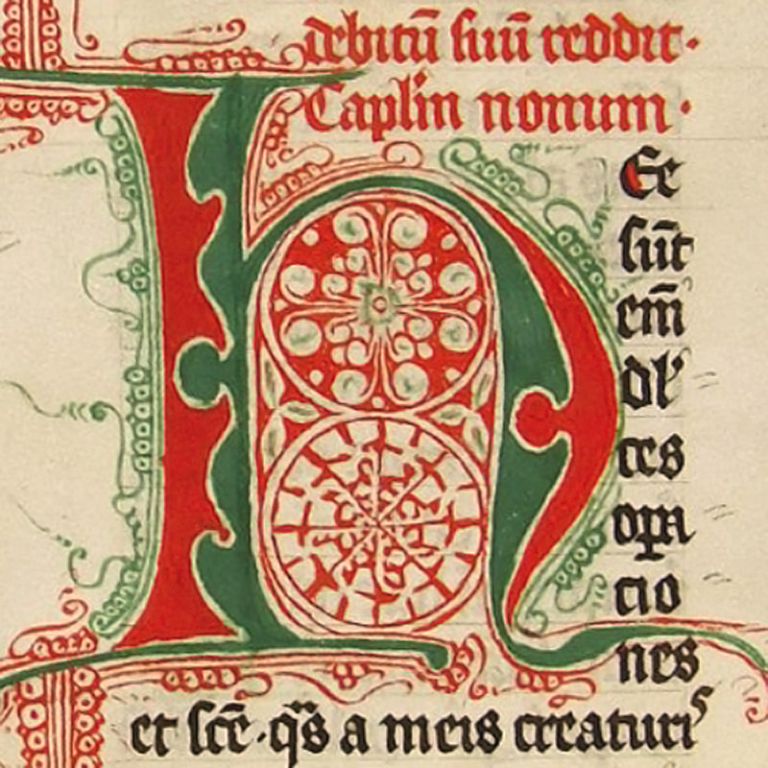 debitū suū reddit·
Caplm̄ nonum·
H Ee
sūt
em̄
dl'
ces
opa
cio
nes
et scē·q̄s a meis creaturis